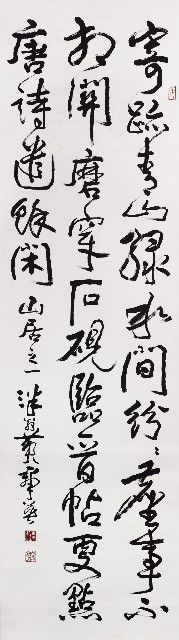 寄跡青山綠水間紛紛塵事不
相關磨穿石硯臨晉帖更點
唐詩遣餘閑 山居之一